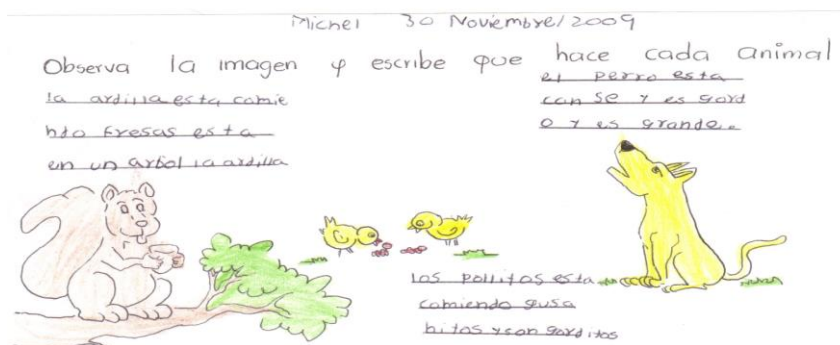 Michel 30 Noviembre/2009
Observa la imagen y escribe que hace cada animal
la ardilla esta comie
ndo fresas esta
en un arbol la ardilla
el perro esta
can se y es gord
o y es grande.
los pollitos esta
comiendo gusa
nitos y son gorditos